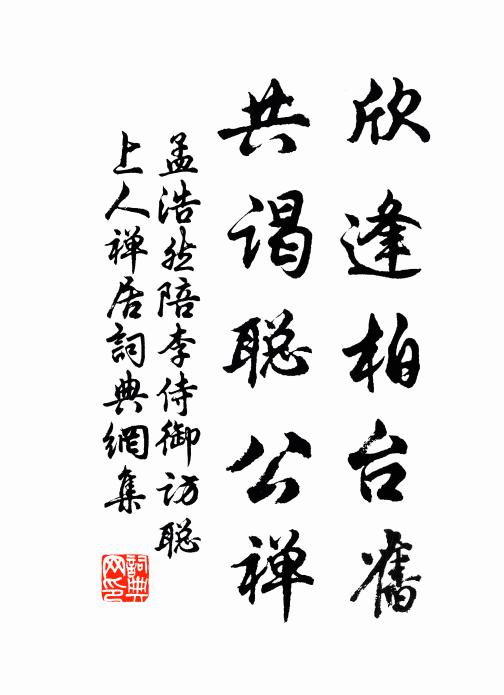 欣逢柏台舊
共谒聪公禅
孟浩然陪李侍御访聪
上人禅居詞典網集
詞典网印